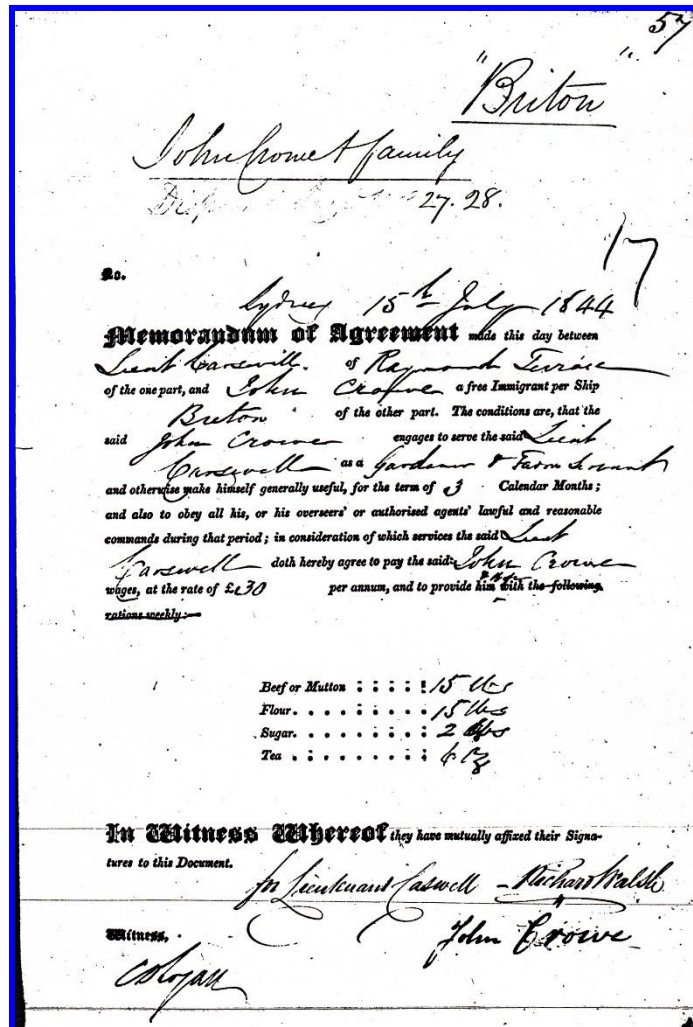 57
"Briton"
John Crowe & family
27. 28.
17
No.
Sydney 15th July 1844
Memorandum of Agreement made this day between
Lieut Carswell of Raymond Terrace
of the one part, and John Crowe a free Immigrant per Ship
Briton of the other part. The conditions are, that the
said John Crowe engages to serve the said Lieut
Carswell as a Gardener & Farm Servant
and otherwise make himself generally useful, for the term of 3 Calendar Months;
and also to obey all his, or his overseers' or authorised agents' lawful and reasonable
commands during that period; in consideration of which services the said Lieut
Carswell doth hereby agree to pay the said John Crowe
wages, at the rate of £30 per annum, and to provide him with the following
rations weekly:—
Beef or Mutton : : : : : 15 lbs
Flour. . . . . . . . . : 15 lbs
Sugar. . . . . . . . . : 2 lbs
Tea . . . . . . . . . :
In Witness Whereof they have mutually affixed their Signa-
tures to this Document.
for Lieutenant Caswell - Richard Walsh
Witness. John Crowe